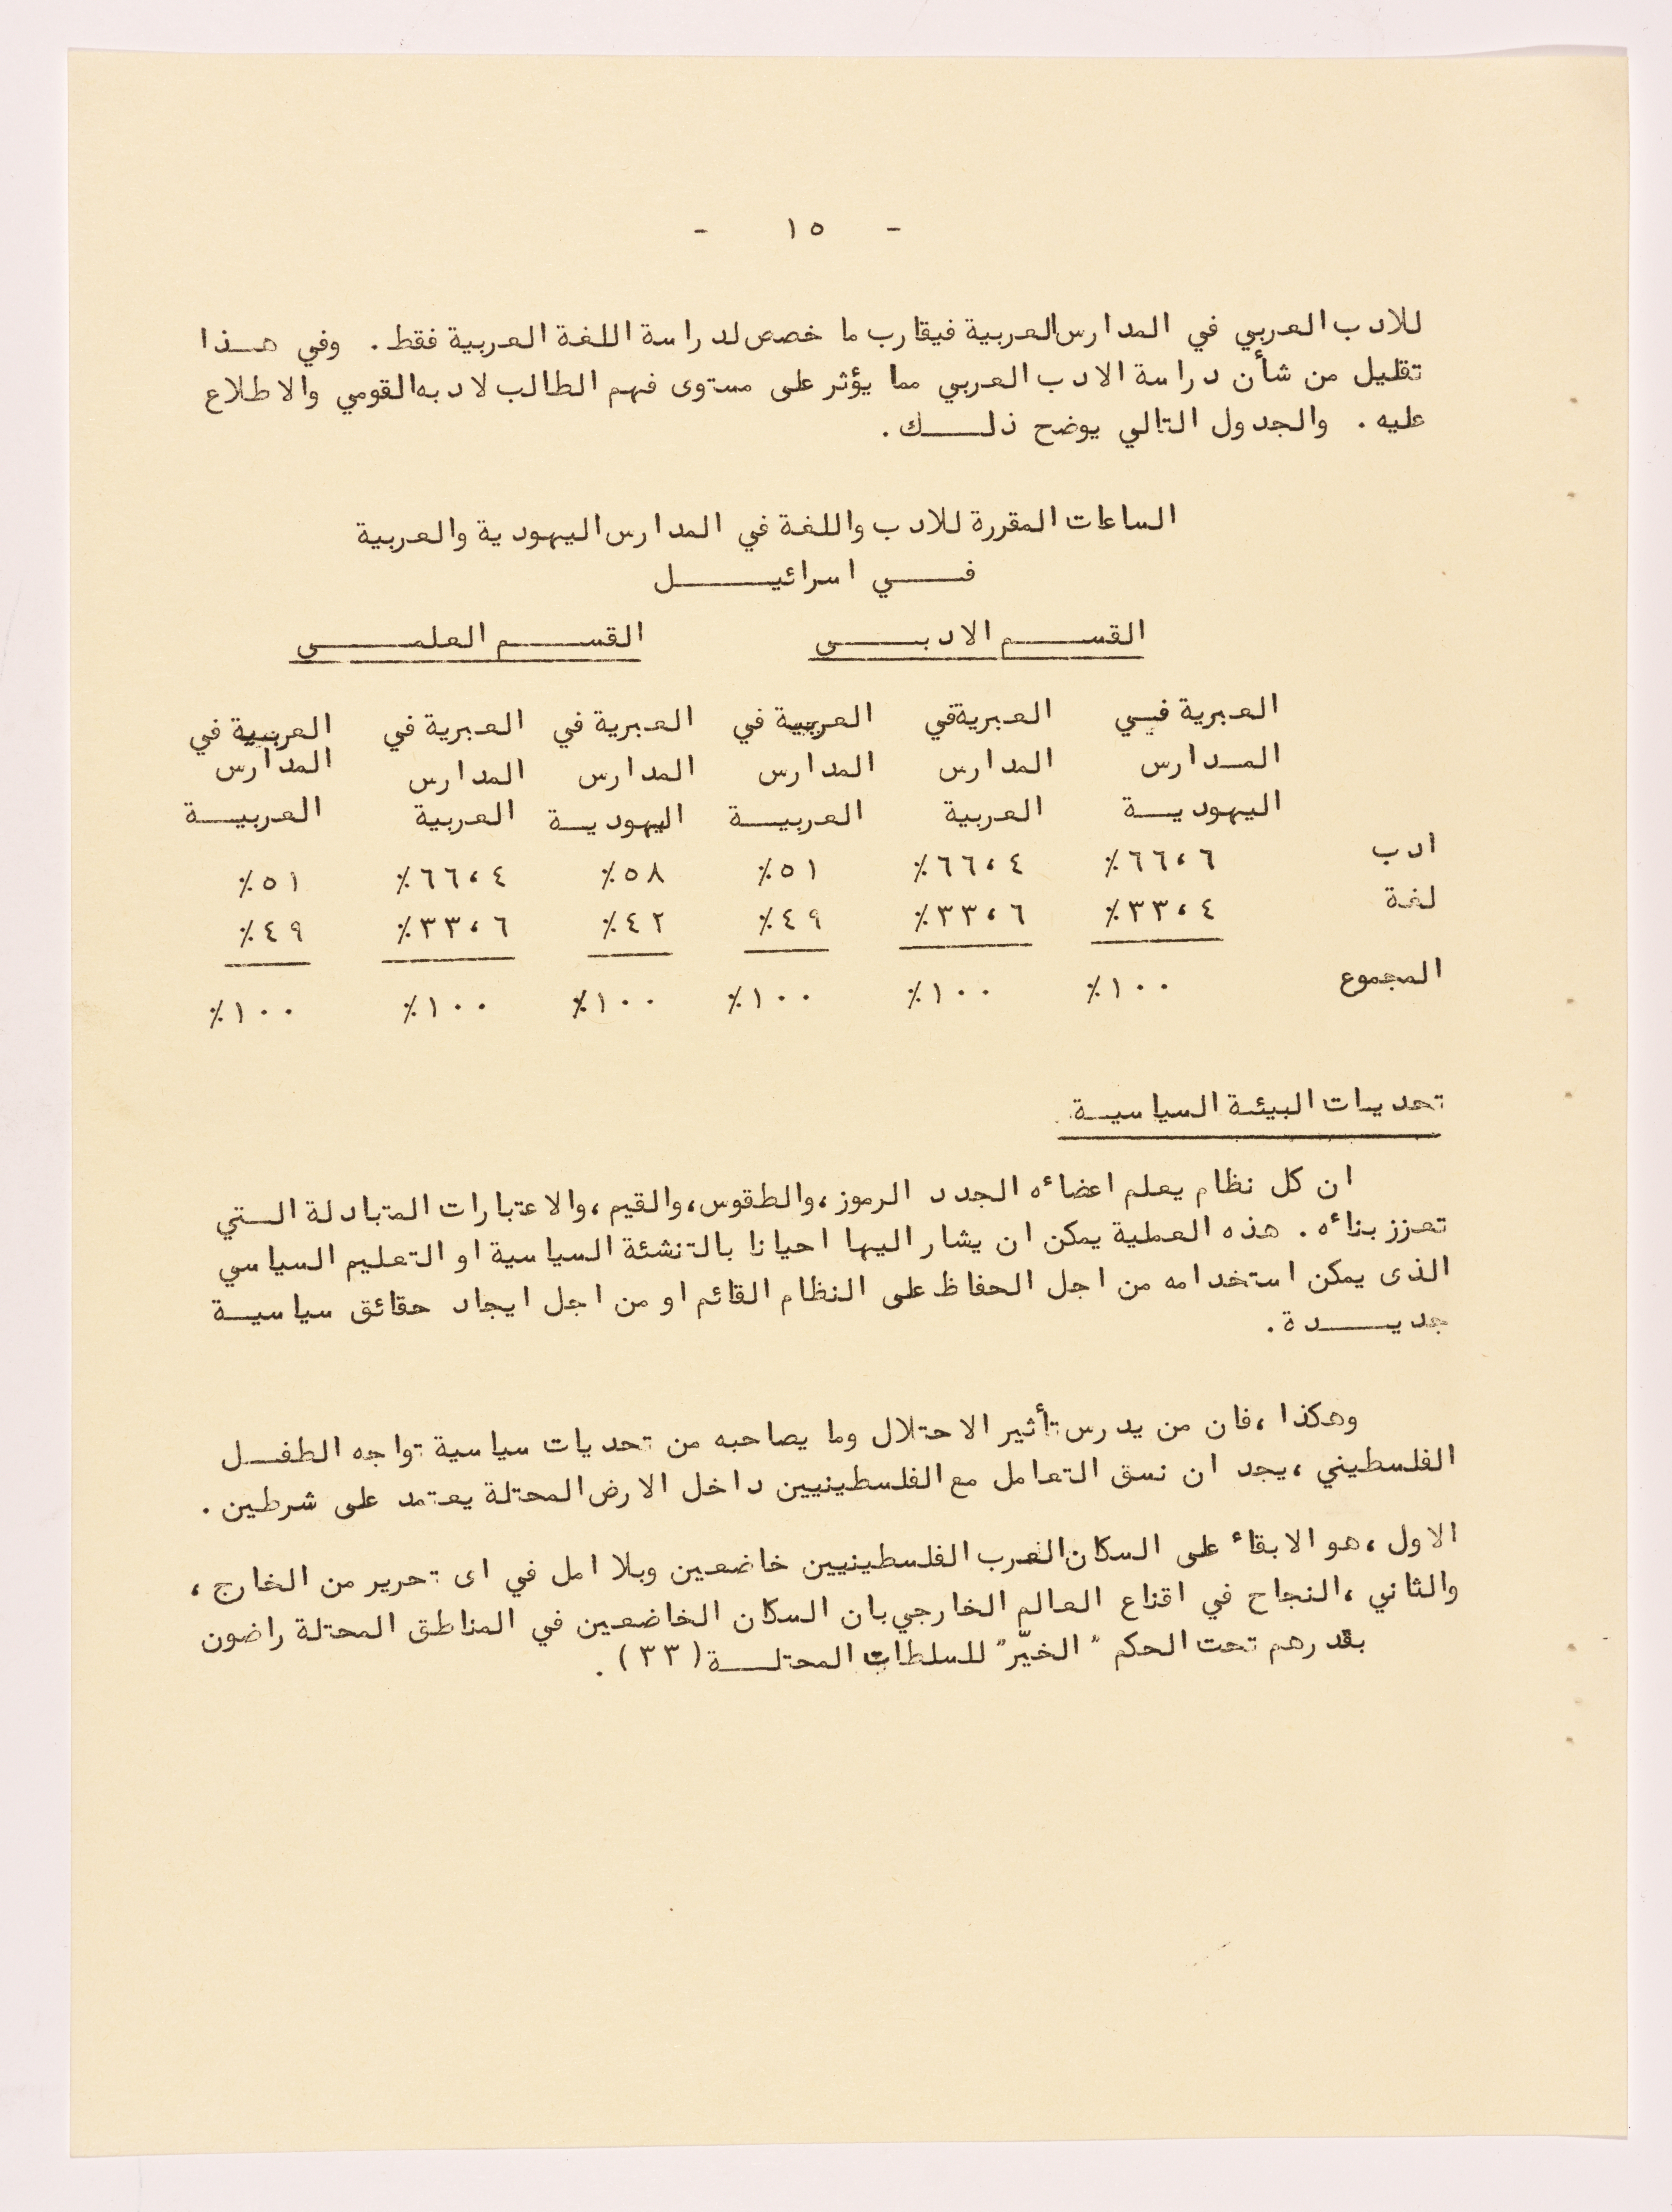 - ١٥ -
للادب العربي في المدارس العربية فيقارب ما خصص لدراسة اللغة العربية فقط . وفي هـذا
تقليل من شأن دراسة الادب العربي مما يؤثر على مستوى فهم الطالب لادبه القومي والاطلاع
عليه . والجدول التالي يوضح ذلــك .
الساعات المقررة للادب واللغة في المدارس اليهودية والعربية
فـــي اسرائيــــل
القســـم الادبـــى القســـم العلمـــى
العبرية فـي العبرية في العربية في العبرية في العبرية في العربية في
المـدارس المدارس المدارس المدارس المدارس المدارس
اليهوديـة العربية العربيـة اليهوديـة العربية العربيـة
ادب ٦٦،٦٪ ٦٦،٤٪ ٥١٪ ٥٨٪ ٦٦،٤٪ ٥١٪
لغة ٣٣،٤٪ ٣٣،٦٪ ٤٩٪ ٤٢٪ ٣٣،٦٪ ٤٩٪
المجموع ١٠٠٪ ١٠٠٪ ١٠٠٪ ١٠٠٪ ١٠٠٪ ١٠٠٪
تحديات البيئة السياسيـة
ان كل نظام يعلم اعضاءه الجدد الرموز ، والطقوس ، والقيم ، والاعتبارات المتبادلة الـتي
تعزز بناءه . هذه العملية يمكن ان يشار اليها احيانا بالتنشئة السياسية او التعليم السياسي
الذى يمكن استخدامه من اجل الحفاظ على النظام القائم او من اجل ايجاد حقائق سياسيـة
جديــدة .
وهكذا ، فان من يدرس تأثير الاحتلال وما يصاحبه من تحديات سياسية تواجه الطفـل
الفلسطيني ، يجد ان نسق التعامل مع الفلسطينيين داخل الارض المحتلة يعتمد على شرطين .
الاول ، هو الابقاء على السكان العرب الفلسطينيين خاضعين وبلا امل في اى تحرير من الخارج ،
والثاني ، النجاح في اقناع العالم الخارجي بان السكان الخاضعين في المناطق المحتلة راضون
بقدرهم تحت الحكم " الخيّر " للسلطات المحتلـة ( ٣٣ ) .